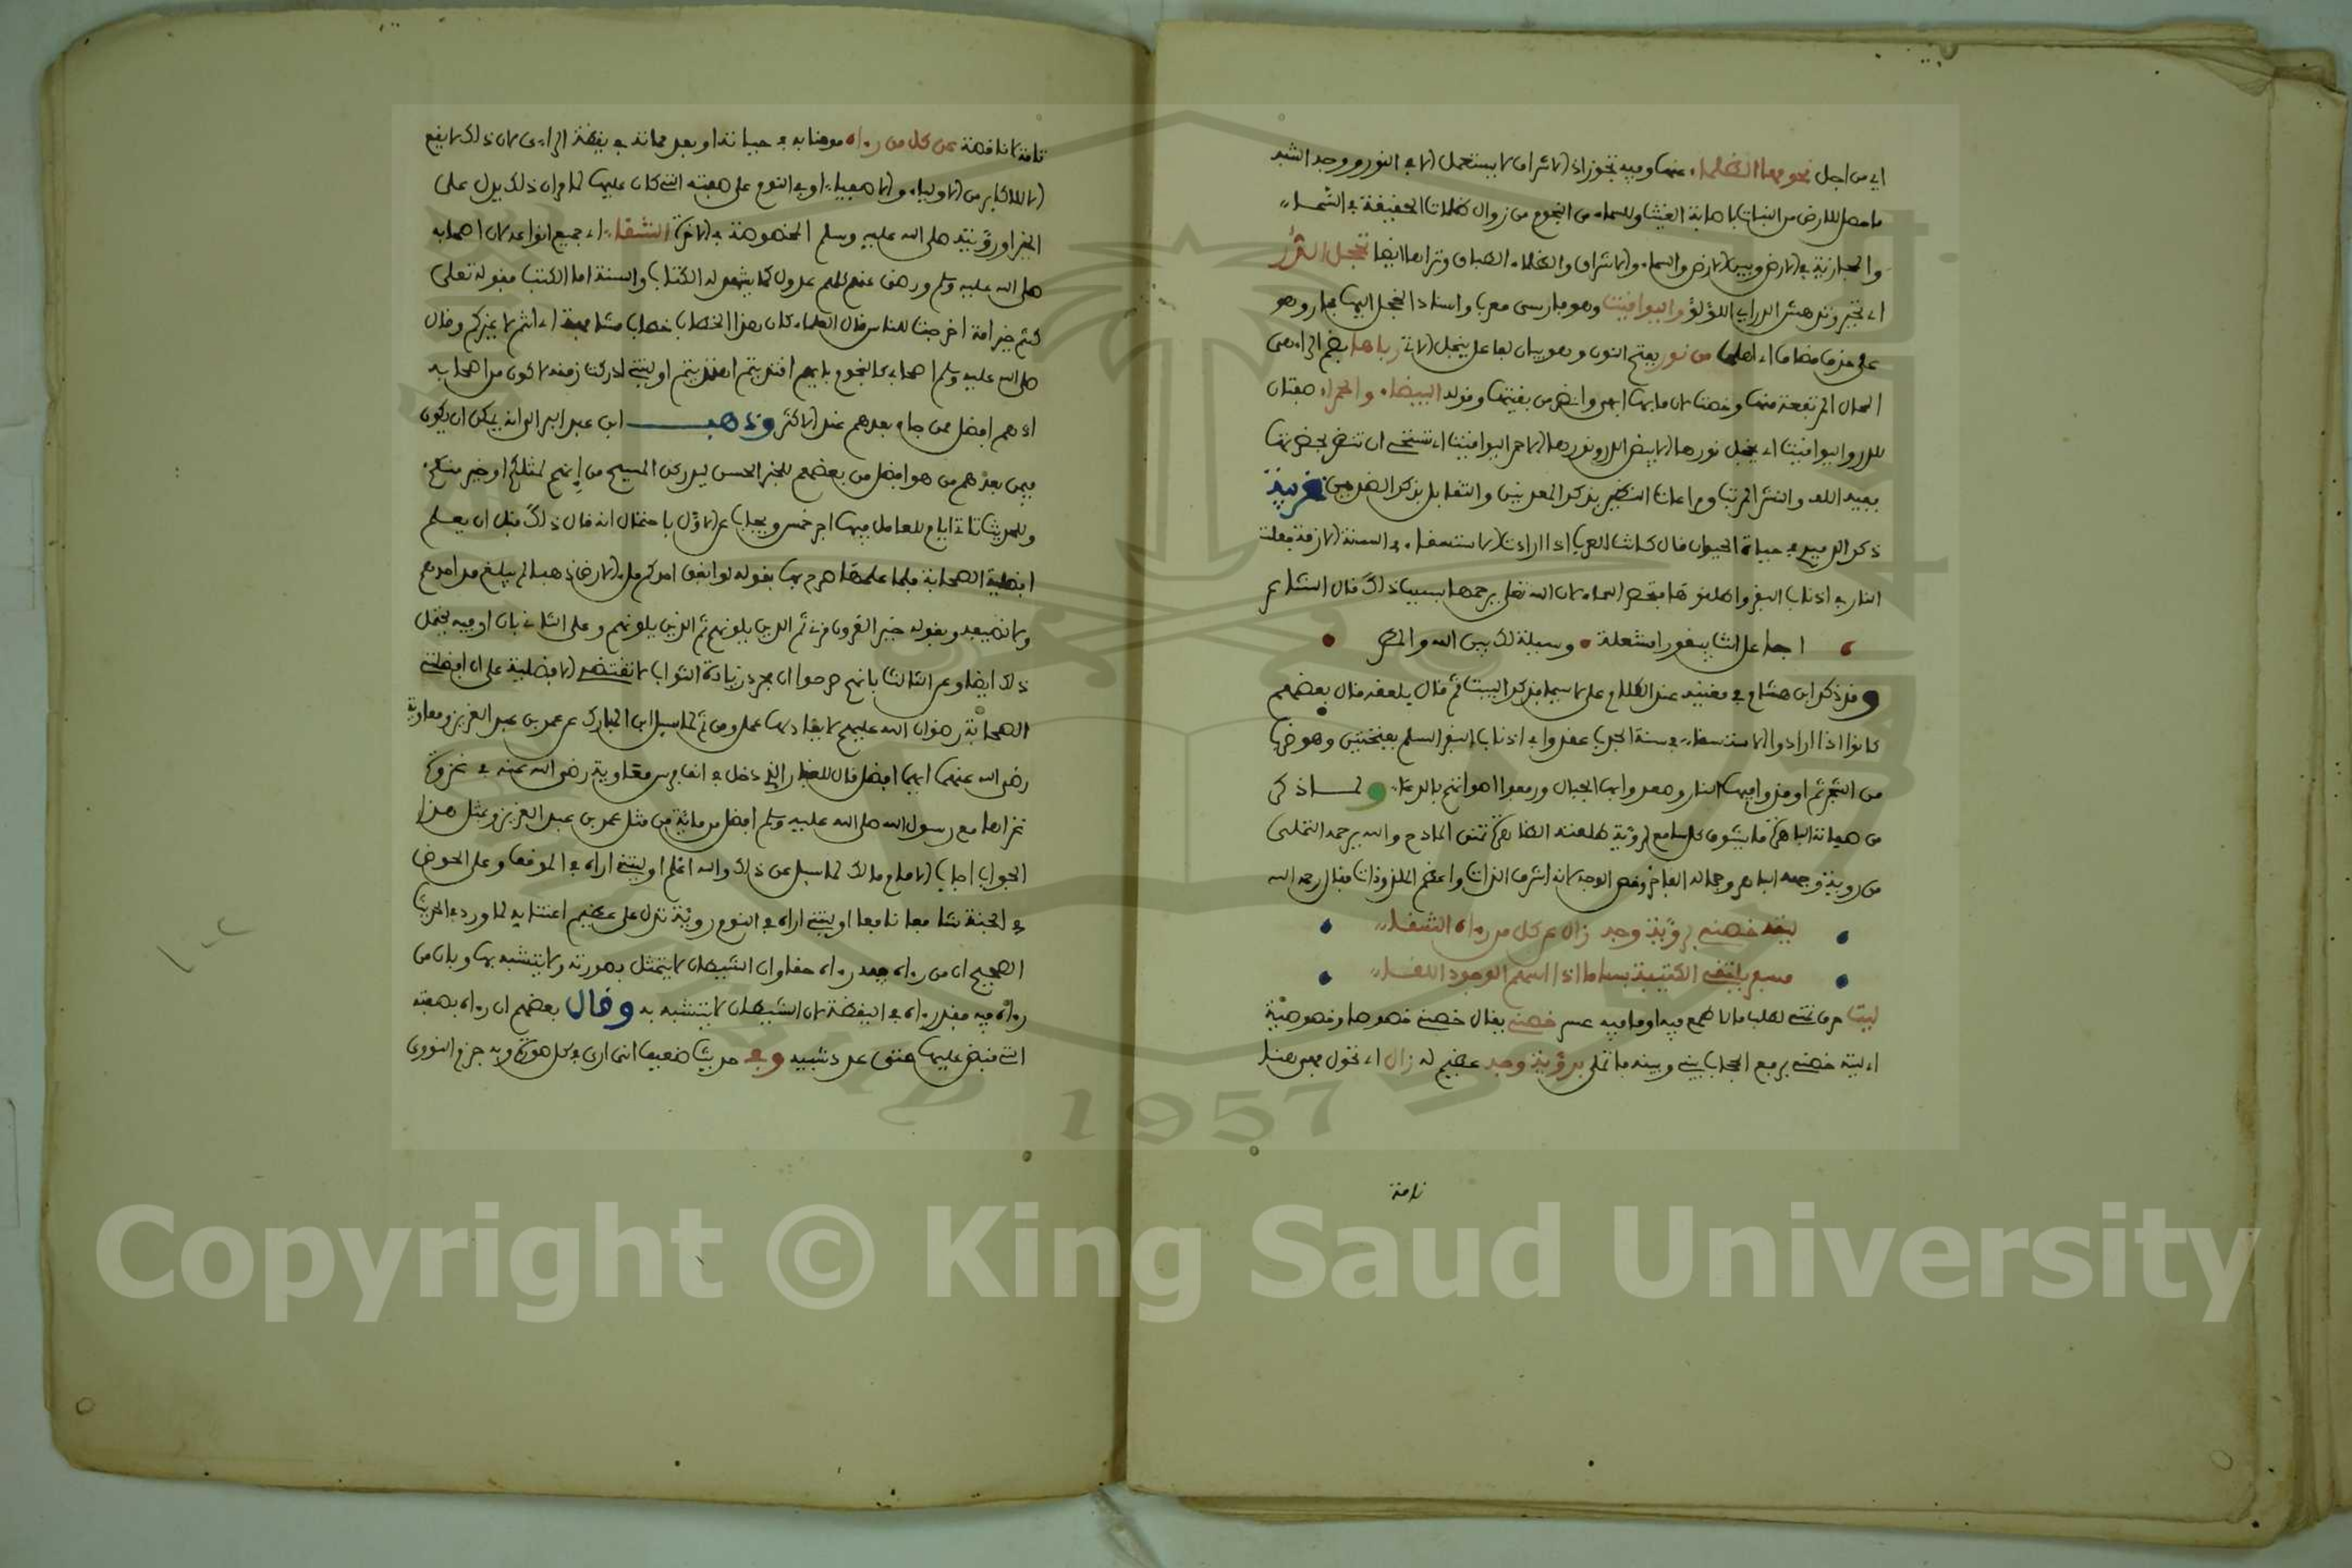 اي من اجل نحو محيا الظلماء عنها وفيه تجوز اذ الاشراف لا يستعمل الا في النور ووجه الشبه
ما حصل للارض من النبات باصابة الغيث وللسماء من النجوم من زوال ظلمات الحقيقة في السماء
والمجازية في الارض وبين الارض والسماء والاشراق والظلماء الطباق وترى ايضا تخجل الدر
اي تحير وتدهش الدراي اللؤلؤ واليواقيت وهو فارسي معرب واسناد الخجل اليهما مجاز وهو
على حذف مضاف اي اهلها من نور بفتح النون وهو بيان لفاعل يخجل الاتي رباها بضم الراء هي
المحال المرتفعة منها وخصت لان ما بها ابهر وانضر من بقيتها وقوله البيضاء والحمراء صفتان
للدر واليواقيت اي يخجل نورها الابيض الدر ونورها الاحمر اليواقيت اي تستحي ان تنضر بحضرتها
ففيه اللف والنشر المرتب ومراعات النظير بذكر المعدنين والتقابل بذكر الضدين غريبة
ذكر الدميري في حياة الحيوان قال كانت العرب اذا ارادت الاستسقاء في السنة الازمة جعلت
النار في اذناب البقر واطلقوها فتمطر السماء لان الله تعلى يرحمها بسبب ذلك قال الشاعر
اجاعل انت بيقورا مشعلة وسيلة لك بين الله والمطر
وقد ذكر ابن هشام في مغنيه عند الكلام على لاسيما فذكر البيت ثم قال يلعقه فقال بعضهم
كانوا اذا ارادوا الاستسقاء في سنة الجدب عقدوا في اذناب البقر السلع بفتحتين وهو ضرب
من الشجر ثم اوقدوا فيها النار وصعدوا بها الجبال ورفعوا اصواتهم بالدعاء ولما ذكر
من صفاته الباهرة ما يشوق كل سامع لرؤية طلعته الظاهرة تمنى المادح والله يرحمه التملي
من روية وجهه الباهر وجماله الفاخر وخص الوجه لانه اشرف الذات واعظم الملذوذات فقال رحمه الله
ليته خصني برؤية وجه زال عن كل من رءاه الشقاء
مسفر يلتقي الكتيبة بساما اذا اسهم الوجوه اللقاء
ليت حرف تمني لطلب ما لا طمع فيه او ما فيه عسر خصني يقال خصه خصوصا وخصوصية
اي ليته خصني برفع الحجاب بيني وبينه فاتملى برؤية وجه عظيم له زال اي تحول فهي هنا
تامة
تامة لا ناقصة عن كل من رءاه مومنا به في حياته او بعد مماته في يقظة الراءي لان ذلك لا يقع
الا للاكابر من الاولياء والاصفياء او في النوم على صفته التي كان عليها لما مر ان ذلك يدل على
الخير او رؤيته صلى الله عليه وسلم المخصوصة في الاخرة الشقاء اي جميع انواعه لان اصحابه
صلى الله عليه وسلم ورضي عنهم كلهم عدول كما يشهد له الكتاب والسنة اما الكتب فقوله تعلى
كنتم خير امة اخرجت للناس قال العلماء كان هذا الخطاب خطاب مشافهة اي انتم لا غيركم وقال
صلى الله عليه وسلم اصحابي كالنجوم بايهم اقتديتم اهتديتم او ليتني ادركت زمنه لاكون من اصحابه
اذ هم افضل ممن جاء بعدهم عند الاكثر وذهب ابن عبد البر الى انه يمكن ان يكون
فيمن بعدهم من هو افضل من بعضهم للخبر الحسن ليدركن المسيح من انهم لمثلكم او خير منكم
وللحديث تاتي ايام للعامل فيها اجر خمس ويجاب عن الاول باحتمال انه قال ذلك قبل ان يعلم
افضلية الصحابة فلما علمها صرح بها بقوله لو انفق احدكم ملء الارض ذهبا لم يبلغ مد احدهم
ولا نصيفه وبقوله خير القرون قرني ثم الذين يلونهم ثم الذين يلونهم وعلى الثاني بان او فيه يحتمل
ذلك ايضا وعن الثالث بانهم صرحوا ان مجرد زيادة الثواب لا تقتضي الافضلية على ان افضلية
الصحابة رضوان الله عليهم لا يعادلها عمل ومن ثم لما سيل ابن المبارك عن عمر بن عبد العزيز ومعاوية
رضي الله عنهما ايهما افضل قال للغبار الذي دخل في انف فرس معاوية رضي الله عنه في غزوة
غزاها مع رسول الله صلى الله عليه وسلم افضل من ماية من مثل عمر بن عبد العزيز وبمثل هذا
الجواب اجاب الامام مالك لما سيل عن ذلك والله اعلم او ليتني اراه في الموقف وعلى الحوض
في الجنة شافعا نافعا او ليتني اراه في النوم رؤية تدل على عظيم اعتنايه لما ورد في الحديث
الصحيح ان من رءاه فيه رءاه حقا وان الشيطان لا يتمثل بصورته ولا يتشبه بها وبان من
رءاه فيه فقد رءاه في اليقظة لان الشيطان لا يتشبه به وقال بعضهم ان رءاه بصفته
التي قبض عليها حتى عدد شيبه وفي حديث ضعيف انى ارى في كل صورة وبه جزم النووي